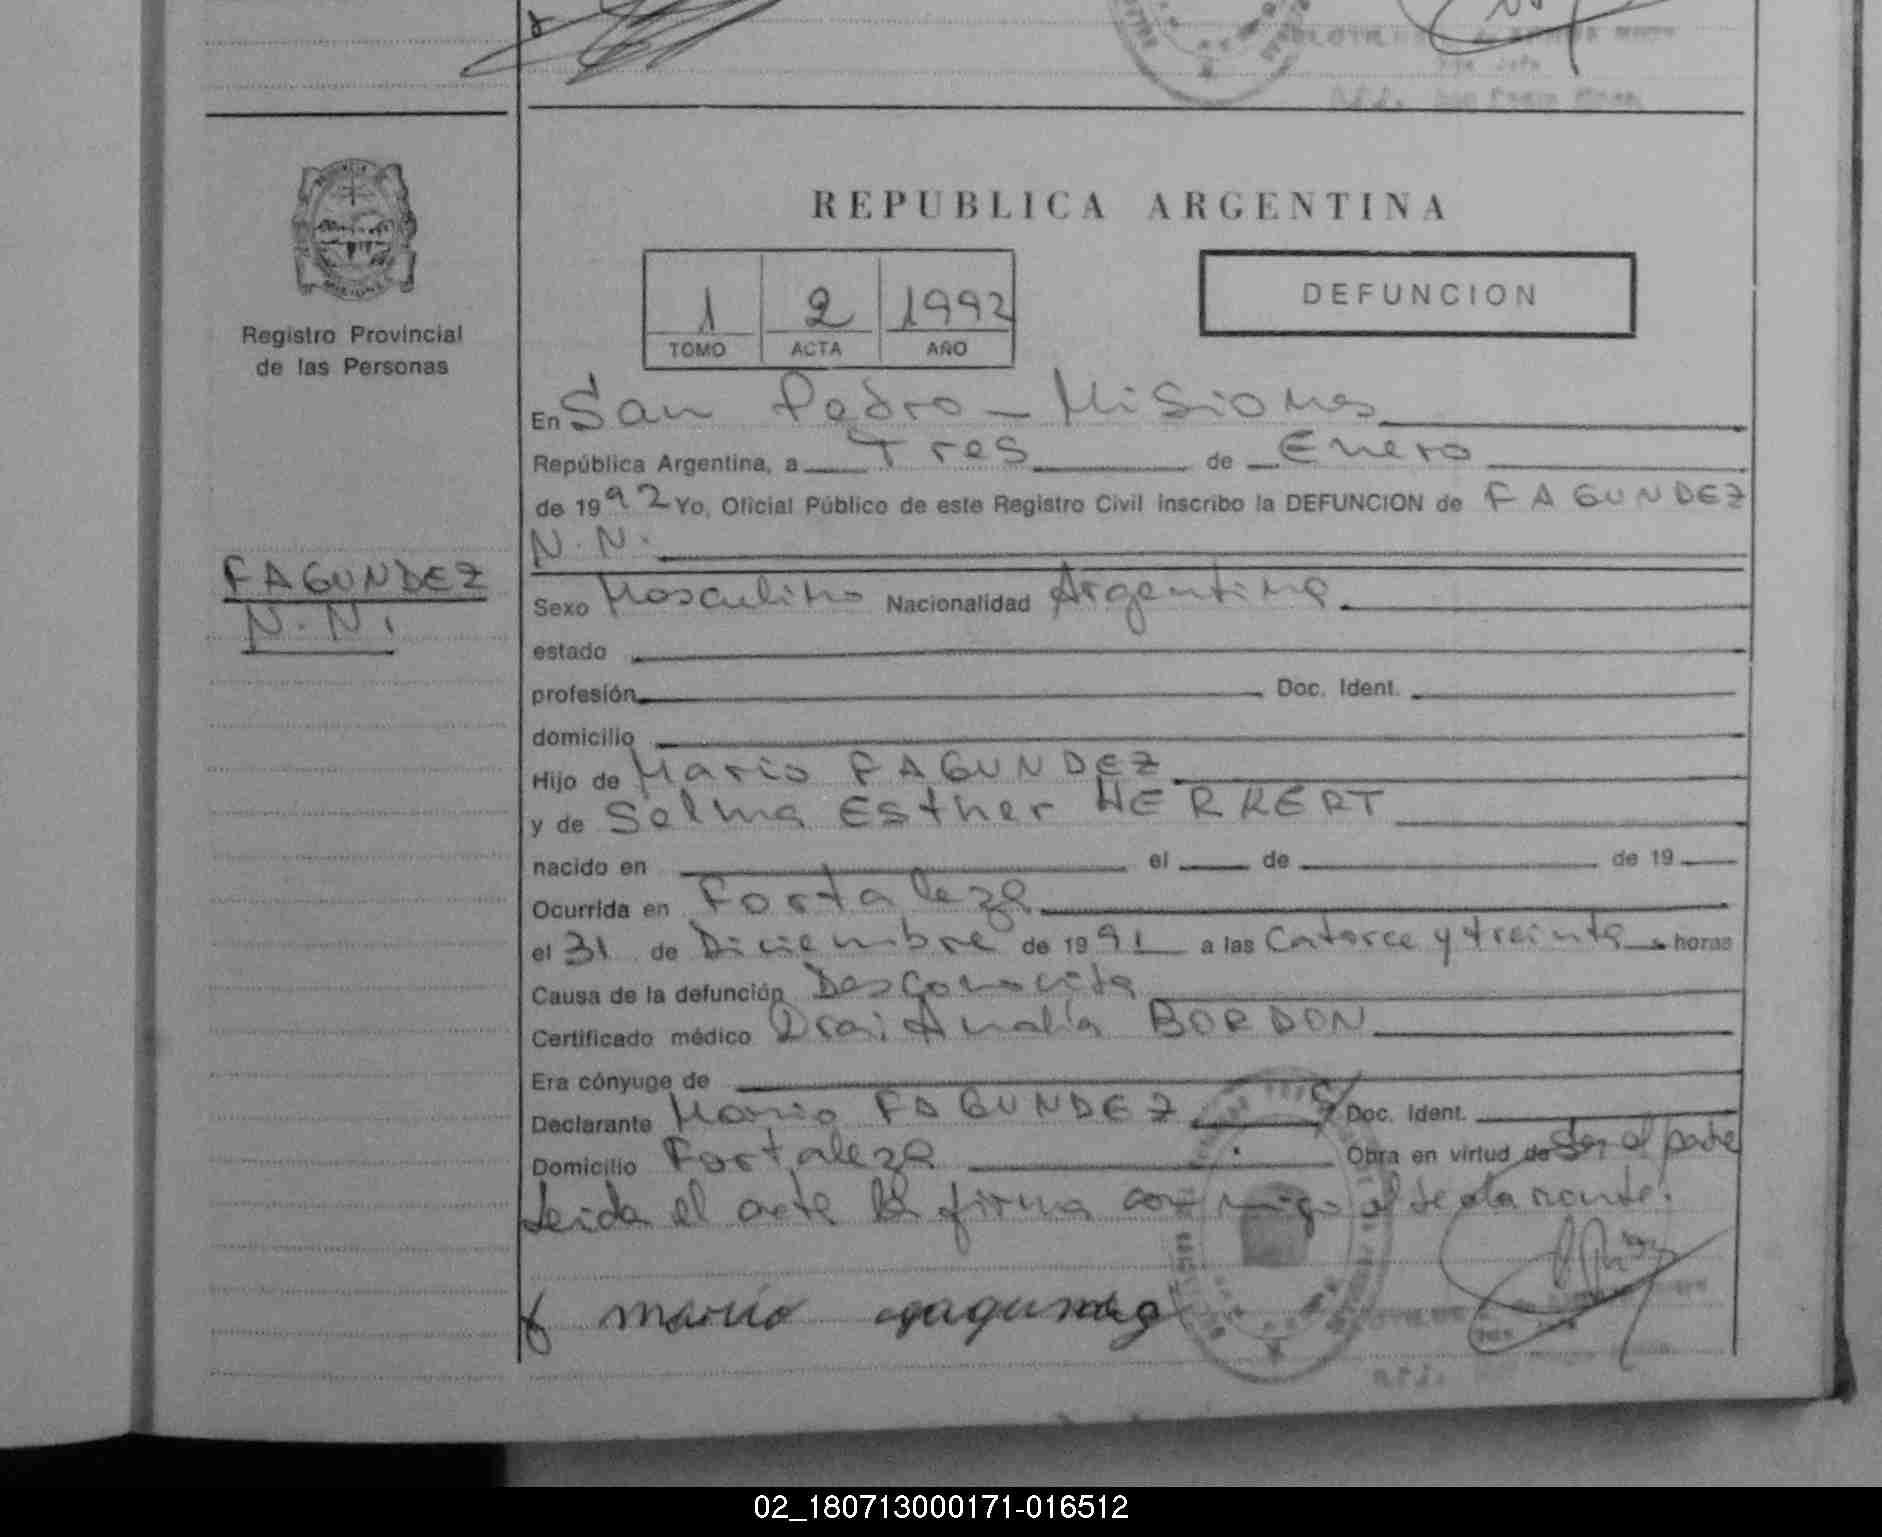 REPUBLICA ARGENTINA
1 2 1992
TOMO ACTA AÑO
DEFUNCION
Registro Provincial
de las Personas
En San Pedro - Misiones
República Argentina, a Tres de Enero
de 1992 Yo, Oficial Público de este Registro Civil inscribo la DEFUNCION de FAGUNDEZ
N.N.
FAGUNDEZ
N.N.
Sexo Masculino Nacionalidad Argentina
estado
profesión Doc. Ident.
domicilio
Hijo de Mario FAGUNDEZ
y de Selma Esther HERKERT
nacido en el de de 19
Ocurrida en Fortaleza
el 31 de Diciembre de 1991 a las Catorce y treinta horas
Causa de la defunción Desconocida
Certificado médico Dra: Analía BORDON
Era cónyuge de
Declarante Mario FAGUNDEZ Doc. Ident.
Domicilio Fortaleza Obra en virtud de Ser el padre
Leida el acta la firma conmigo el declarante.
mario
02_180713000171-016512